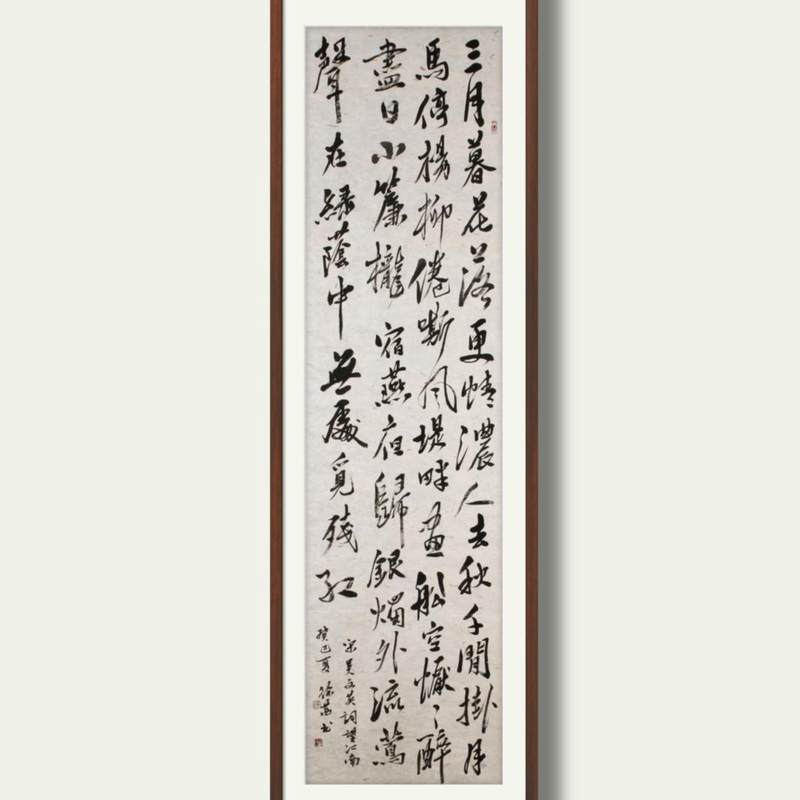 三月暮花落更情濃人去秋千閒掛月
馬停楊柳倦嘶風堤畔畫船空懨〻醉
盡日小簾櫳宿燕夜歸銀燭外流鶯
聲在綠蔭中無處覓殘紅
宋吳文英詞望江南
癸巳夏徐書